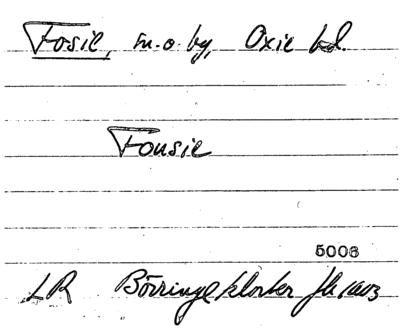 Fosie, sn. o. by, Oxie hd.
Fousie
5006
LR Börringekloster